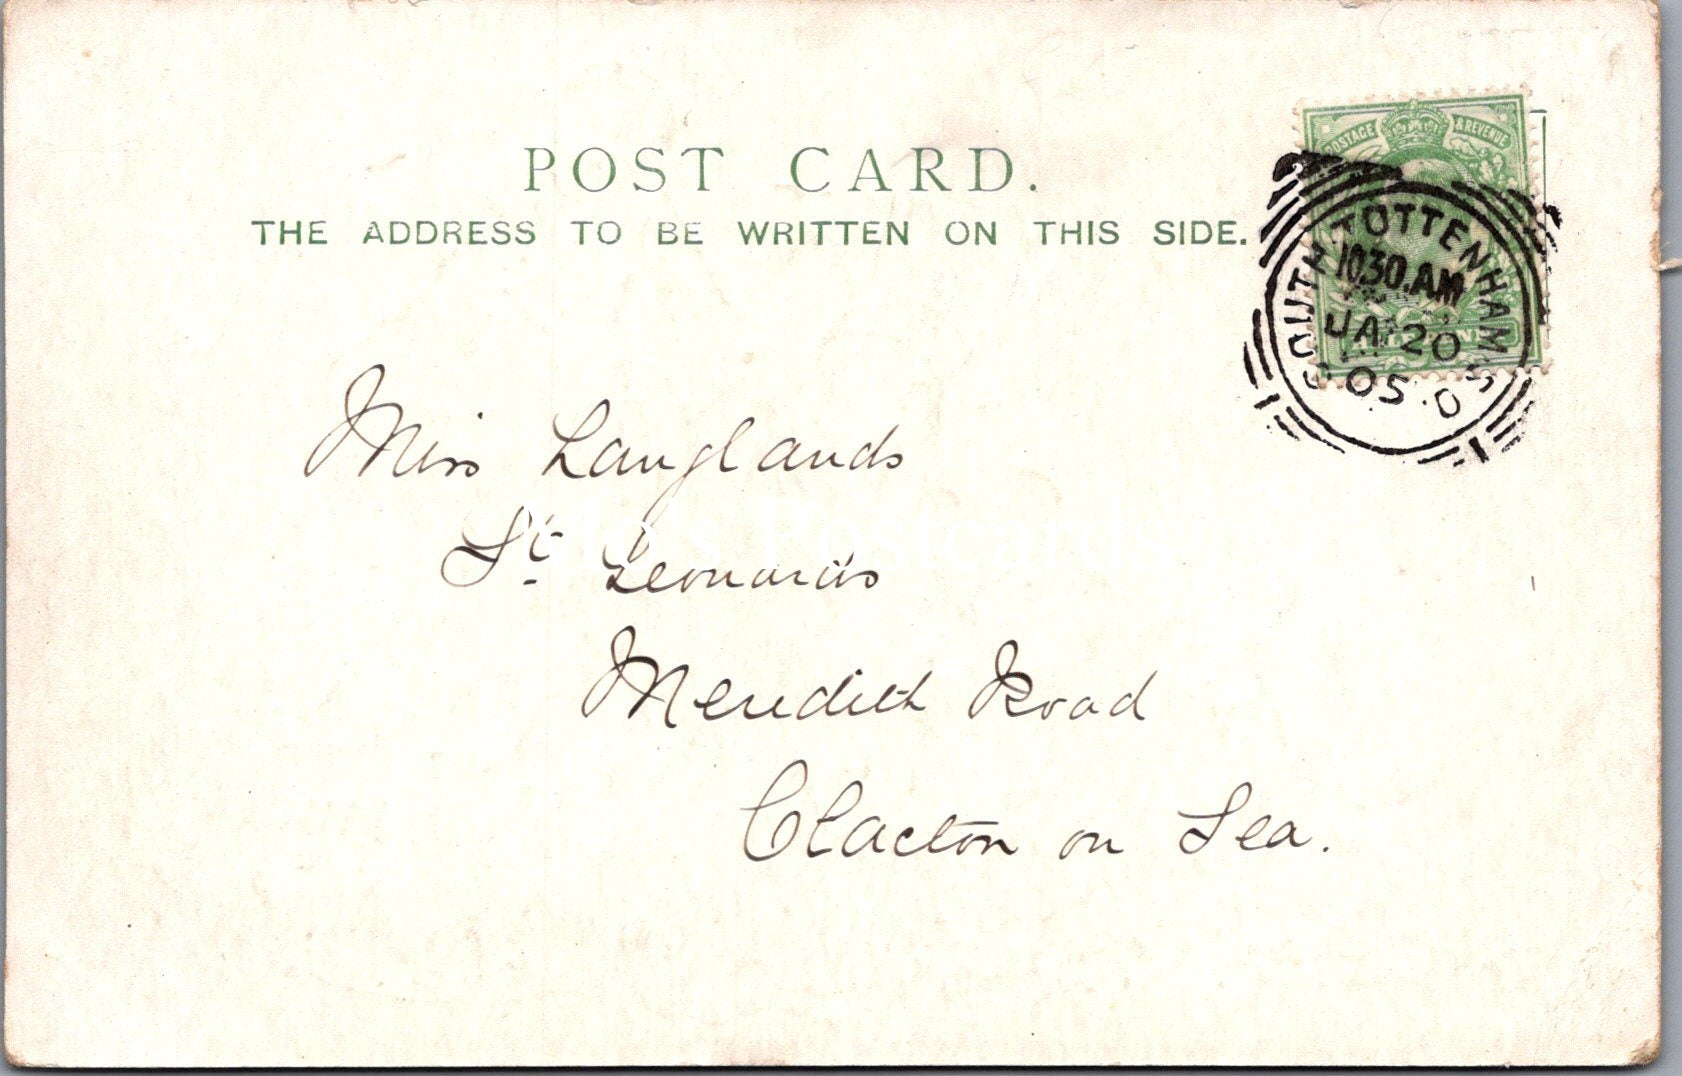 POST CARD.
THE ADDRESS TO BE WRITTEN ON THIS SIDE.
POSTAGE & REVENUE
SOUTH TOTTENHAM S.O
10.30.AM
JA 20
05
Miss Langlands
St. Leonards
Meredith Road
Clacton on Sea.
Postcards